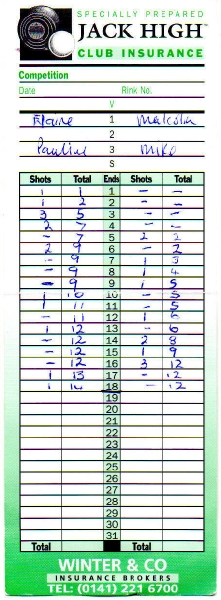 SPECIALLY PREPARED
JACK HIGH™
CLUB INSURANCE
Competition
Date Rink No.
V
Elaine 1 Malcolm
2
Pauline 3 Mike
S
Shots Total Ends Shots Total
1 1 1 - -
1 2 2 - -
3 5 3 - -
2 7 4 - -
- 7 5 2 2
2 9 6 - 2
- 9 7 1 3
- 9 8 1 4
- 9 9 1 5
1 10 10 - 5
1 11 11 - 5
- 11 12 1 6
1 12 13 - 6
- 12 14 2 8
- 12 15 1 9
- 12 16 3 12
1 13 17 - 12
1 14 18 - 12
19
20
21
22
23
24
25
26
27
28
29
30
31
Total Total
WINTER & CO
INSURANCE BROKERS
TEL: (0141) 221 6700